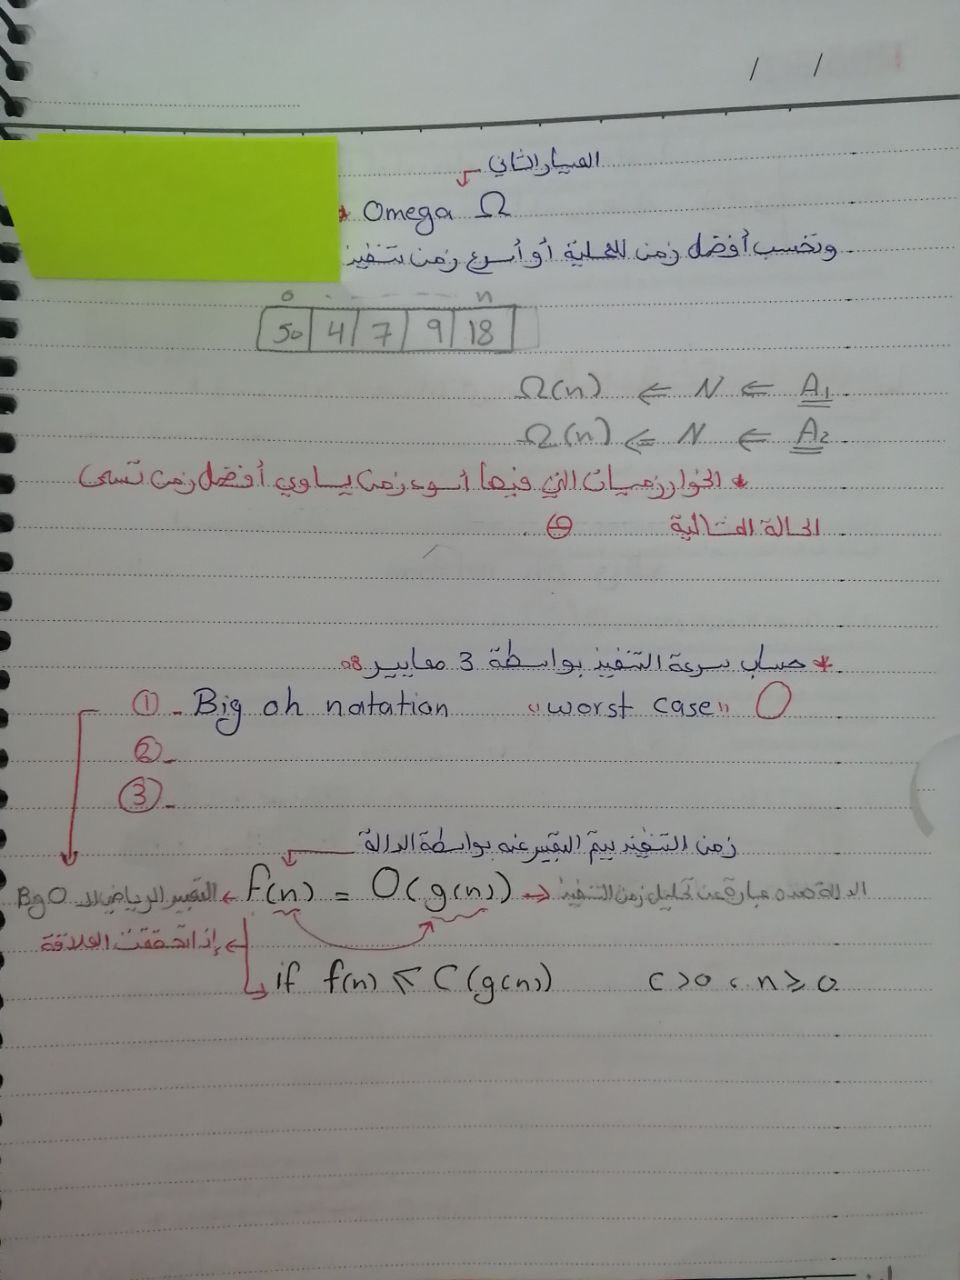 / /
المعيار الثاني
* Omega Ω
وتحسب أفضل زمن للعملية أو أسرع زمن تنفيذ
0 - - - - n
50 4 7 9 18
Ω(n) ⇐ N ⇐ A1
Ω(n) ⇐ N ⇐ A2
* الخوارزميات التي فيها أسوء زمن يساوي أفضل زمن تسمى
الحالة المثالية Θ
* حساب سرعة التنفيذ بواسطة 3 معايير
① - Big oh notation "worst case" O
② -
③ -
زمن التنفيذ يتم التعبير عنه بواسطة الدالة
الدالة هذه عبارة عن تحليل زمن التنفيذ ← f(n) = O(g(n)) ← التعبير الرياضي لـ Big O
إذا تحققت العلاقة
if f(n) ≤ C(g(n)) c>0 ، n≥0